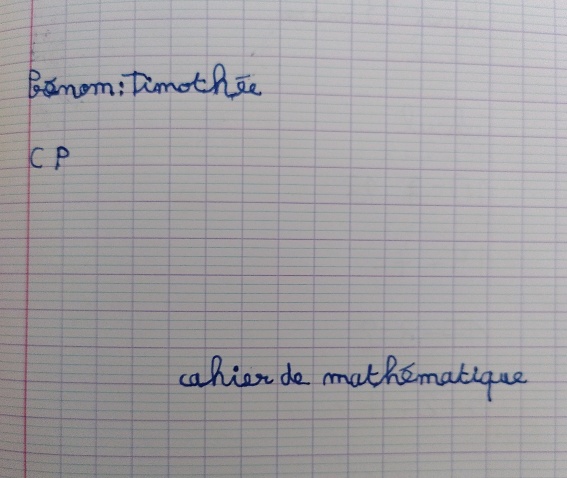 Prénom: Timothée
CP
cahier de mathématique